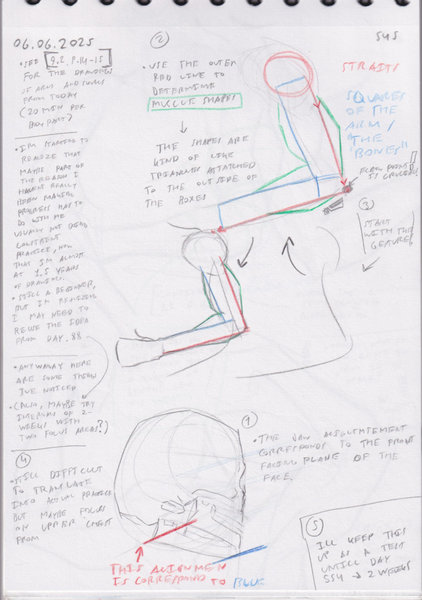 06.06.2025
• SEE 9.2, P.14-15
FOR THE DRAWINGS
OF ARM AND SKULLS
FROM TODAY
(20 MIN PER
BODY PART)
• I'M STARTING TO
REALIZE THAT
MAYBE PART OF
THE REASON I
HAVEN'T REALLY
BEEN MAKING
PROGRESS HAS TO
DO WITH ME
USUALLY NOT DOING
CONSTANT
PRACTICE, NOW
THAT I'M ALMOST
AT 1,5 YEARS
OF DRAWING.
• STILL A BEGINNER,
BUT I'M REALIZING
I MAY NEED TO
REUSE THE IDEA
FROM DAY. 88
• ANYWAY HERE
ARE SOME THINGS
I'VE NOTICED
• (ALSO, MAYBE TRY
INTERVAL OF 2-
WEEKS WITH
TWO FOCUS AREAS?)
④
• STILL DIFFICULT
TO TRANSLATE
INTO ACTUAL PRACTICE
BUT MAYBE FOCUS
ON UPPER CHEST
FROM
②
• USE THE OUTER
RED LINE TO
DETERMINE
MUSCLE SHAPES
THE SHAPES ARE
KIND OF LIKE
TRIANGLES ATTACHED
TO THE OUTSIDE OF
THE BOXES
545
STRAITS
SQUARES OF THE
ARM/
THE
"BONES"
IS CRUCIAL
③
START
WITH THIS
GESTURE
①
• THE JAW ALIGNTMENT
CORRESPONDS TO THE FRONT
FACING PLANE OF THE
FACE.
THIS ALIGNMEN
IS CORRESPOND TO BLUE
⑤
ILL KEEP THIS
UP AS A TEST
UNTILL DAY
554 → 2 WEEKS